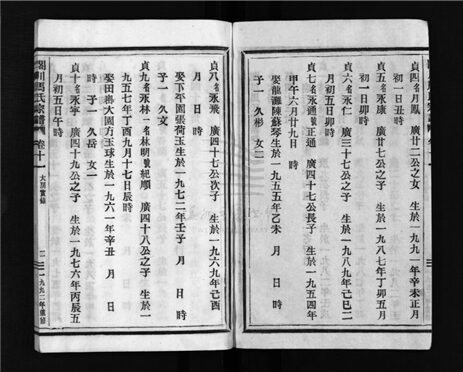 貞四名月鳳 廣廿二公之女 生於一九九一年辛未正月
初一日
貞五名永康 廣廿七公之子 生於一九八七年丁卯五月
初一日卯時
貞六名永仁 廣三十七公之子 生於一九八九年己巳二
月 日 時
貞七名永通號正通 廣四十七公長子 生於一九五四年
甲午六月廿九日 時
娶龍灘陳蘇琴生於一九五五年乙未 月 日 時
子一 久彬 女二
貞八名永飛 廣四十七公次子 生於一九六九年己酉
月 日 時
娶下岸園張荷玉生於一九七二年壬子 月 日 時
子一 久文
貞九名永林一名林明號紀順 廣四十八公之子 生於一
九五七年丁酉九月十七日辰時
娶田岱大園方玉球生於一九六一年辛丑 月 日
時 子一 久岳 女一
貞十名永寧 廣四十九公之子 生於一九七六年丙辰五
月初五日午時
氏宗譜
卷十一
大房實錄
一九九二年重修